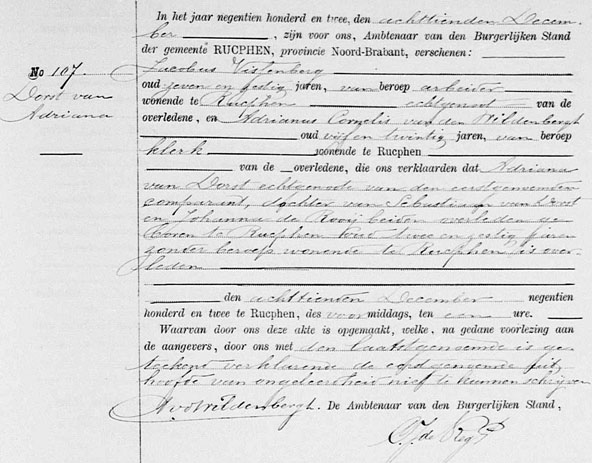 In het jaar negentien honderd en twee, den achttienden Decem-
ber, zijn voor ons, Ambtenaar van den Burgerlijken Stand
der gemeente RUCPHEN, provincie Noord-Brabant, verschenen:
No 107.
Dorst van
Adriana
Jacobus Vissenberg
oud zeven en zestig jaren, van beroep arbeider
wonende te Rucphen echtgenoot van de
overledene, en Adrianus Cornelis van den Wildenbergh
oud vijf en twintig jaren, van beroep
klerk wonende te Rucphen
van de overledene, die ons verklaarden dat Adriana
van Dorst echtgenoote van den eerstgenoemden
comparant, dochter van Sebastiaan van Dorst
en Johanna de Rooij beiden overleden ge
boren te Rucphen oud twee en zestig jaren
zonder beroep wonende te Rucphen is over-
leden
den achttienden December negentien
honderd en twee te Rucphen, des voormiddags, ten een ure.
Waarvan door ons deze akte is opgemaakt, welke, na gedane voorlezing aan
de aangevers, door ons met den laatstgenoemde is ge
teekend verklarende de eerstgenoemde uit
hoofde van ongeleerdheid niet te kunnen schrijven
AvdWildenbergh. De Ambtenaar van den Burgerlijken Stand,